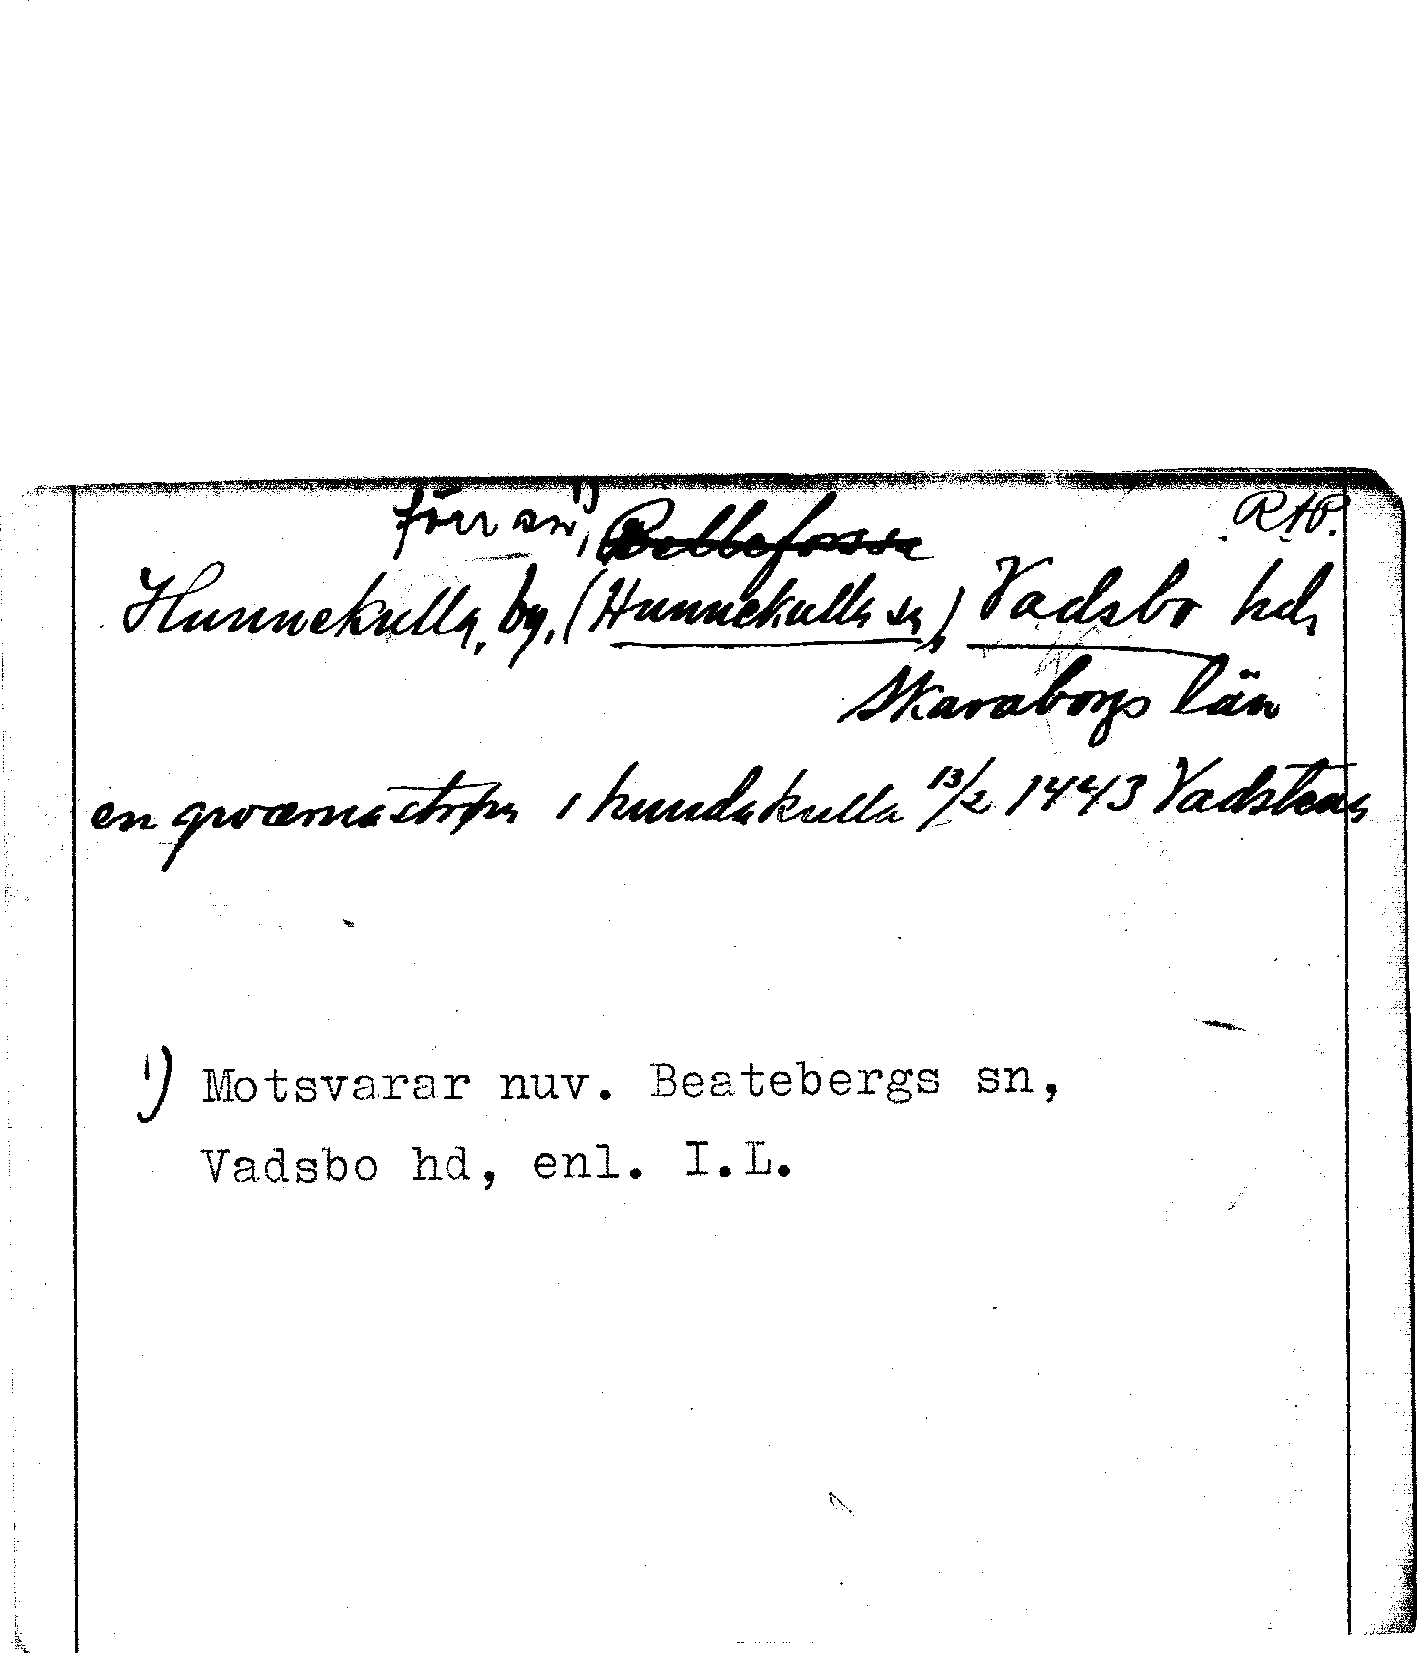 förr sn¹), Belleforssa RAP.
Hunnekulla, by, (Hunnekulla sn), Vadsbo hd,
Skaraborgs län
en qwærnastrøm i hundakulla 13/2 1443 Vadstena
1) Motsvarar nuv. Beatebergs sn,
Vadsbo hd, enl. I.L.